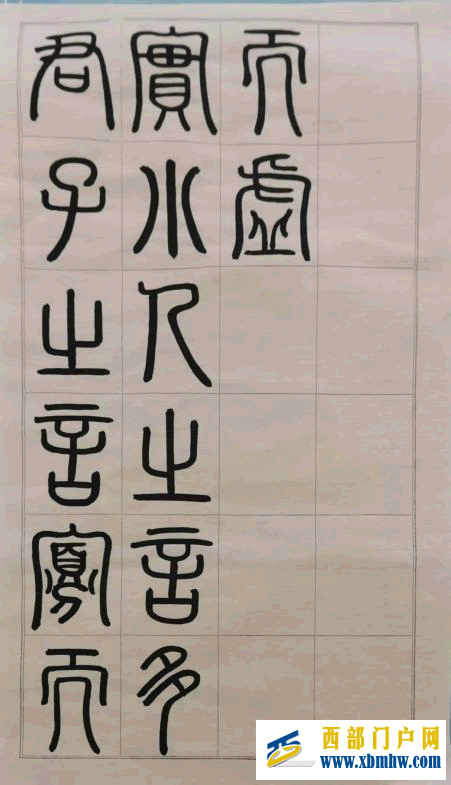 君子之言寡而
實小人之言多
而虛
西部门户网
www.xbmhw.com